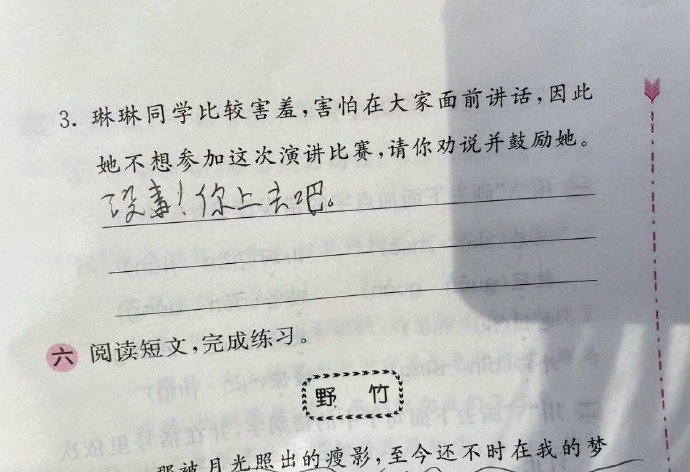 3. 琳琳同学比较害羞,害怕在大家面前讲话,因此
她不想参加这次演讲比赛,请你劝说并鼓励她。
没事!你上去吧。
六 阅读短文,完成练习。
野竹
那被月光照出的瘦影,至今还不时在我的梦